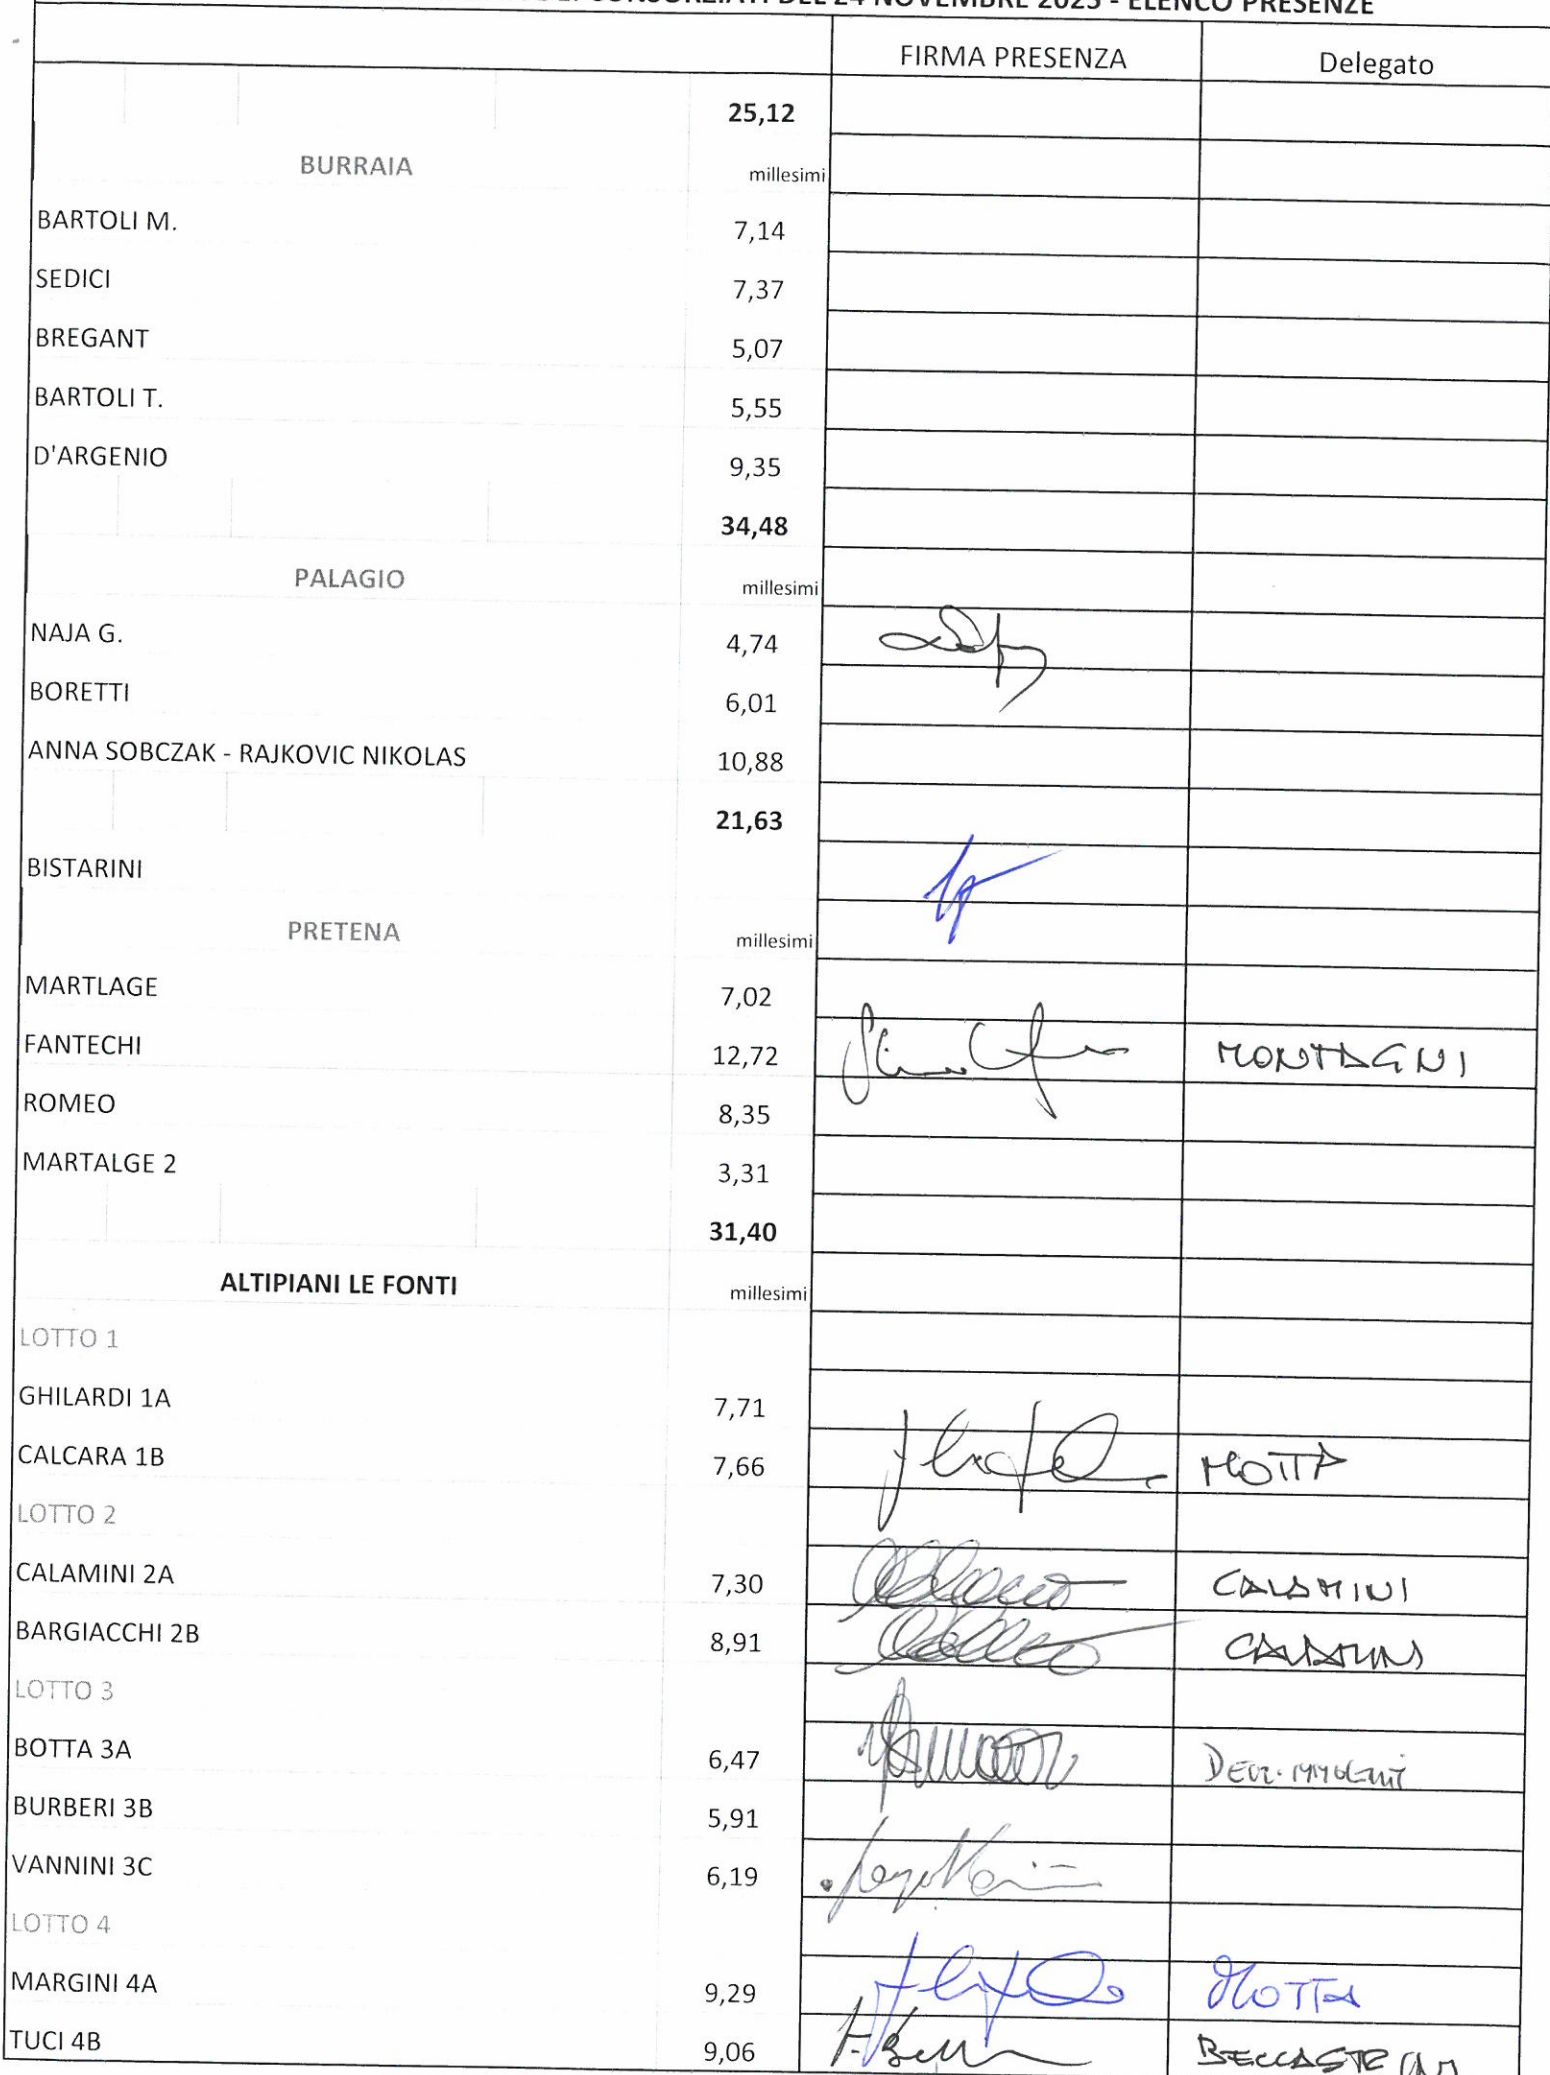 CONSORZIATI DEL 24 NOVEMBRE 2025 - ELENCO PRESENZE
FIRMA PRESENZA Delegato
25,12
BURRAIA millesimi
BARTOLI M. 7,14
SEDICI 7,37
BREGANT 5,07
BARTOLI T. 5,55
D'ARGENIO 9,35
34,48
PALAGIO millesimi
NAJA G. 4,74
BORETTI 6,01
ANNA SOBCZAK - RAJKOVIC NIKOLAS 10,88
21,63
BISTARINI
PRETENA millesimi
MARTLAGE 7,02
FANTECHI 12,72 MONTAGNI
ROMEO 8,35
MARTALGE 2 3,31
31,40
ALTIPIANI LE FONTI millesimi
LOTTO 1
GHILARDI 1A 7,71
CALCARA 1B 7,66 MOTTA
LOTTO 2
CALAMINI 2A 7,30 CALAMINI
BARGIACCHI 2B 8,91 CALAMINI
LOTTO 3
BOTTA 3A 6,47
BURBERI 3B 5,91
VANNINI 3C 6,19
LOTTO 4
MARGINI 4A 9,29 MOTTA
TUCI 4B 9,06